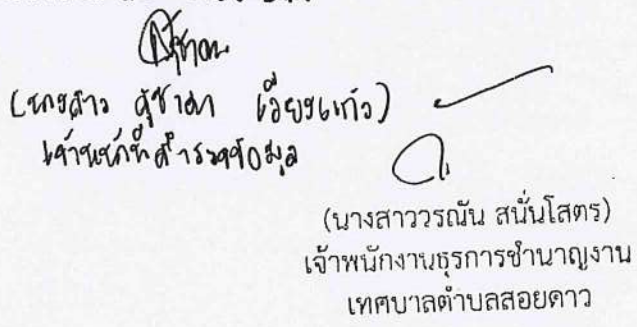 (นางสาว สุชาดา เวียงแก้ว)
เจ้าหน้าที่สำรวจข้อมูล
(นางสาววรณัน สนั่นโสตร)
เจ้าพนักงานธุรการชำนาญงาน
เทศบาลตำบลสอยดาว